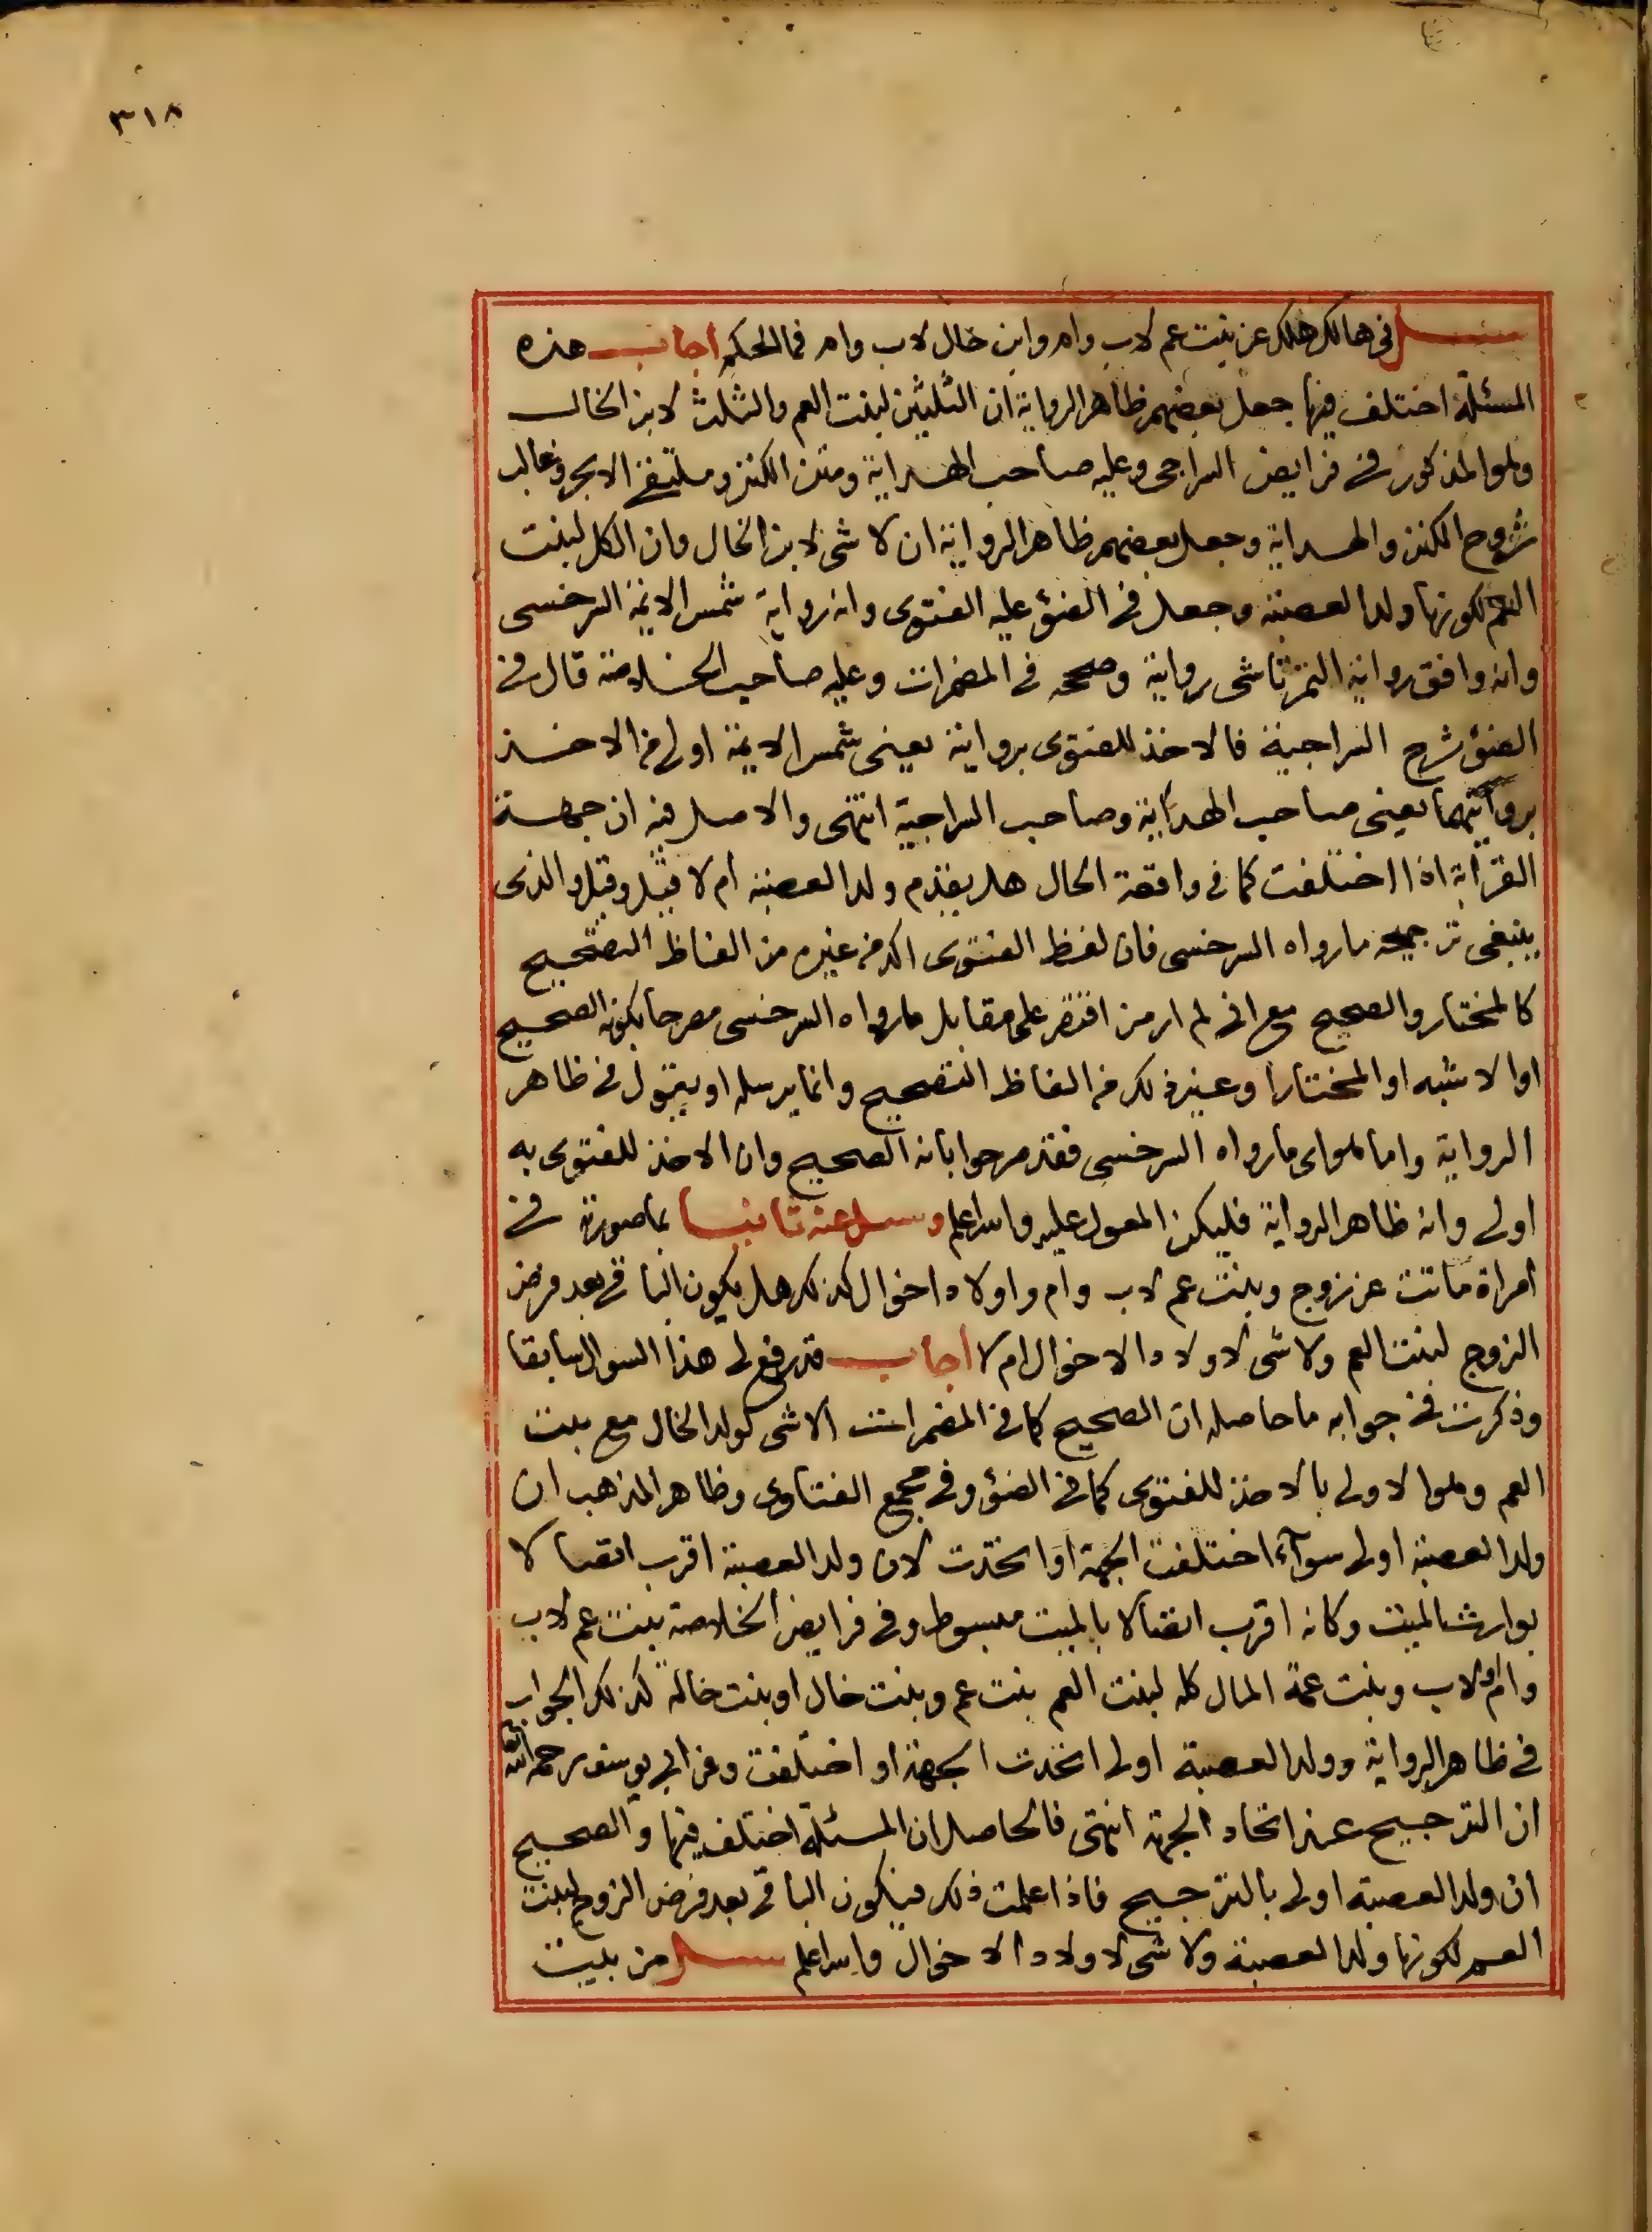 ٣١٨
سئل في هالك هلك عن بنت عم لاب وام وابن خال لاب وام فما الحكم اجاب هذه
المسئلة اختلف فيها جعل بعضهم ظاهر الرواية ان الثلثين لبنت العم والثلث لابن الخال
وهو المذكور في فرايض السراجى وعليه صاحب الهداية ومتن الكنز وملتقى الابحر وغالب
شروح الكنز والهداية وجعل بعضهم ظاهر الرواية ان لا شى لابن الخال وان الكل لبنت
العم لكونها ولد العصبة وجعل في الضوء عليه الفتوى وانه رواية شمس الايمة السرخسى
وانه وافق رواية التمرتاشى رواية وصححه في المضمرات وعليه صاحب الخلاصة قال في
الضوء شرح السراجية فالاخذ للفتوى برواية يعنى شمس الايمة اولى من الاخذ
بروايتهما يعنى صاحب الهداية وصاحب السراجية انتهى والاصل فيه ان جهة
القرابة اذا اختلفت كما في واقعة الحال هل يقدم ولد العصبة ام لا قيل وقيل والذى
ينبغى ترجيحه ما رواه السرخسى فان لفظ الفتوى اكد من غيره من الفاظ التصحيح
كالمختار والصحيح مع انى لم ار من اقتصر على مقابل ما رواه السرخسى مصرحا بكونه الصحيح
او الاشبه او المختار او غير ذلك من الفاظ التصحيح وانما يرسله او يقول في ظاهر
الرواية واما هو اى ما رواه السرخسى فقد صرحوا بانه الصحيح وان الاخذ للفتوى به
اولى وانه ظاهر الرواية فليكن المعول عليه والله اعلم وسئل عنه ثانيا بما صورته في
امراة ماتت عن زوج وبنت عم لاب وام واولاد اخوال كذلك هل يكون الباقى بعد فرض
الزوج لبنت العم ولا شى لاولاد الاخوال ام لا اجاب قد رفع لى هذا السوال سابقا
وذكرت في جوابه ما حاصله ان الصحيح كما في المضمرات ان لا شى لولد الخال مع بنت
العم وهو الاولى بالاخذ للفتوى كما في الضوء وفي مجمع الفتاوى وظاهر المذهب ان
ولد العصبة اولى سوآء اختلفت الجهة او اتحدت لان ولد العصبة اقرب اتصالا
بوارث الميت وكانه اقرب اتصالا بالميت مبسوط وفي فرايض الخلاصة بنت عم لاب
وام او لاب وبنت عمة المال كله لبنت العم بنت عم وبنت خال او بنت خالة كذلك الجواب
في ظاهر الرواية وولد العصبة اولى اتحدت الجهة او اختلفت وعن ابى يوسف رحمه الله
ان الترجيح عند اتحاد الجهة انتهى فالحاصل ان المسئلة اختلف فيها والصحيح
ان ولد العصبة اولى بالترجيح فاذا علمت ذلك فيكون الباقى بعد فرض الزوج لبنت
العم لكونها ولد العصبة ولا شى لاولاد الاخوال والله اعلم سئل من بيت